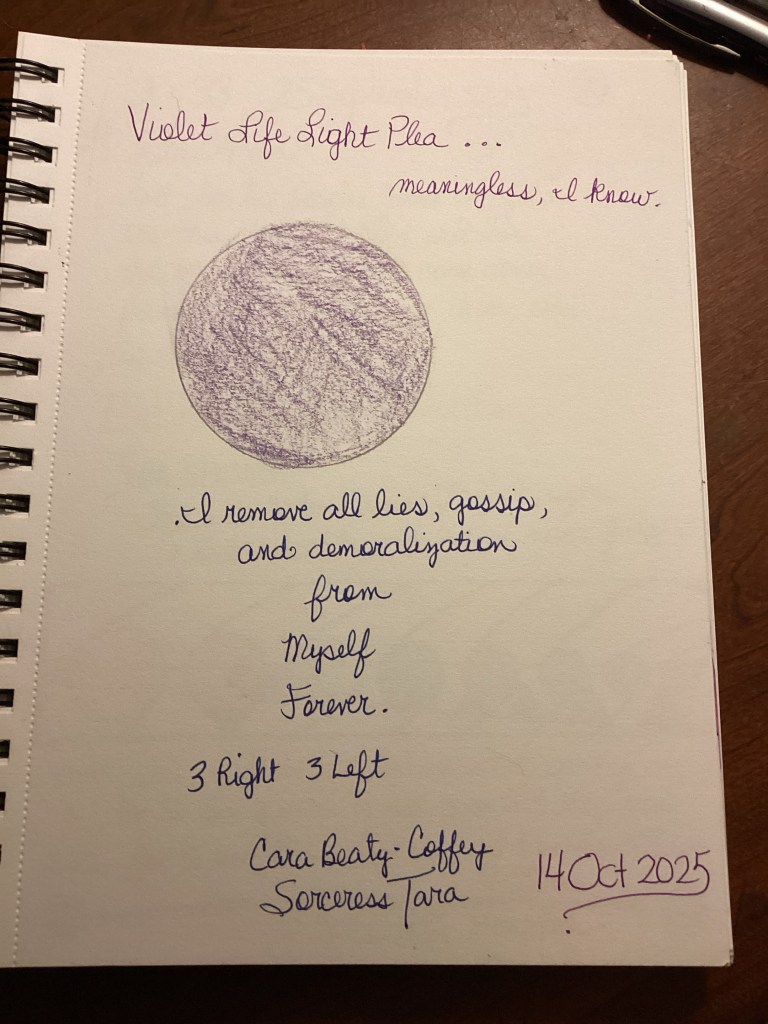 Violet Life Light Plea ...
meaningless, I know.
I remove all lies, gossip,
and demoralization
from
Myself
Forever.
3 Right 3 Left
Cara Beaty-Coffey
Sorceress Tara
14 Oct 2025